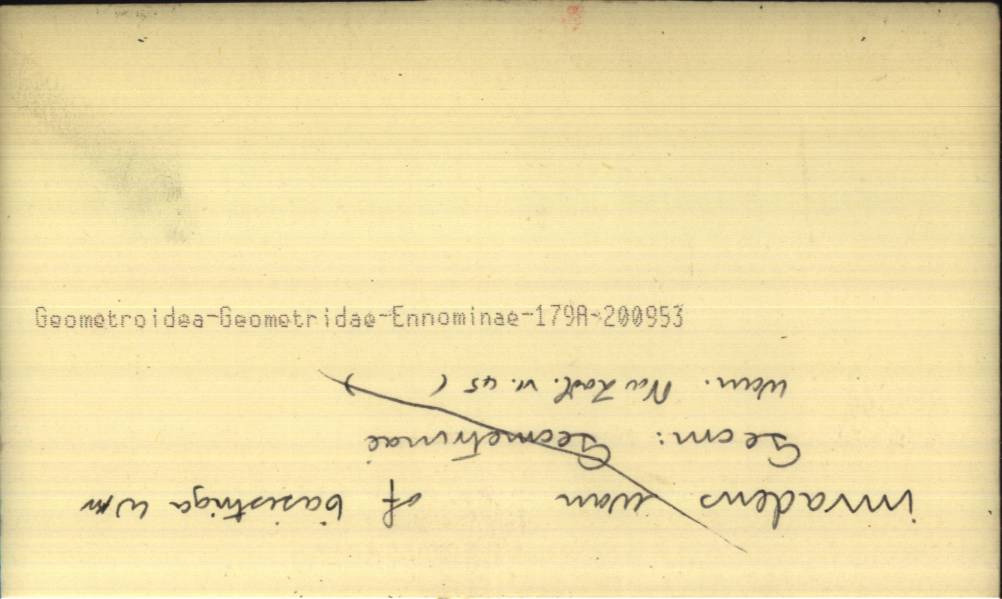 Geometroidea-Geometridae-Ennominae-179A-200953
invadens Warr of basistriga Wlk
Geom: Geometrinae
Warr. Nov Zool. vi. 45 ( )